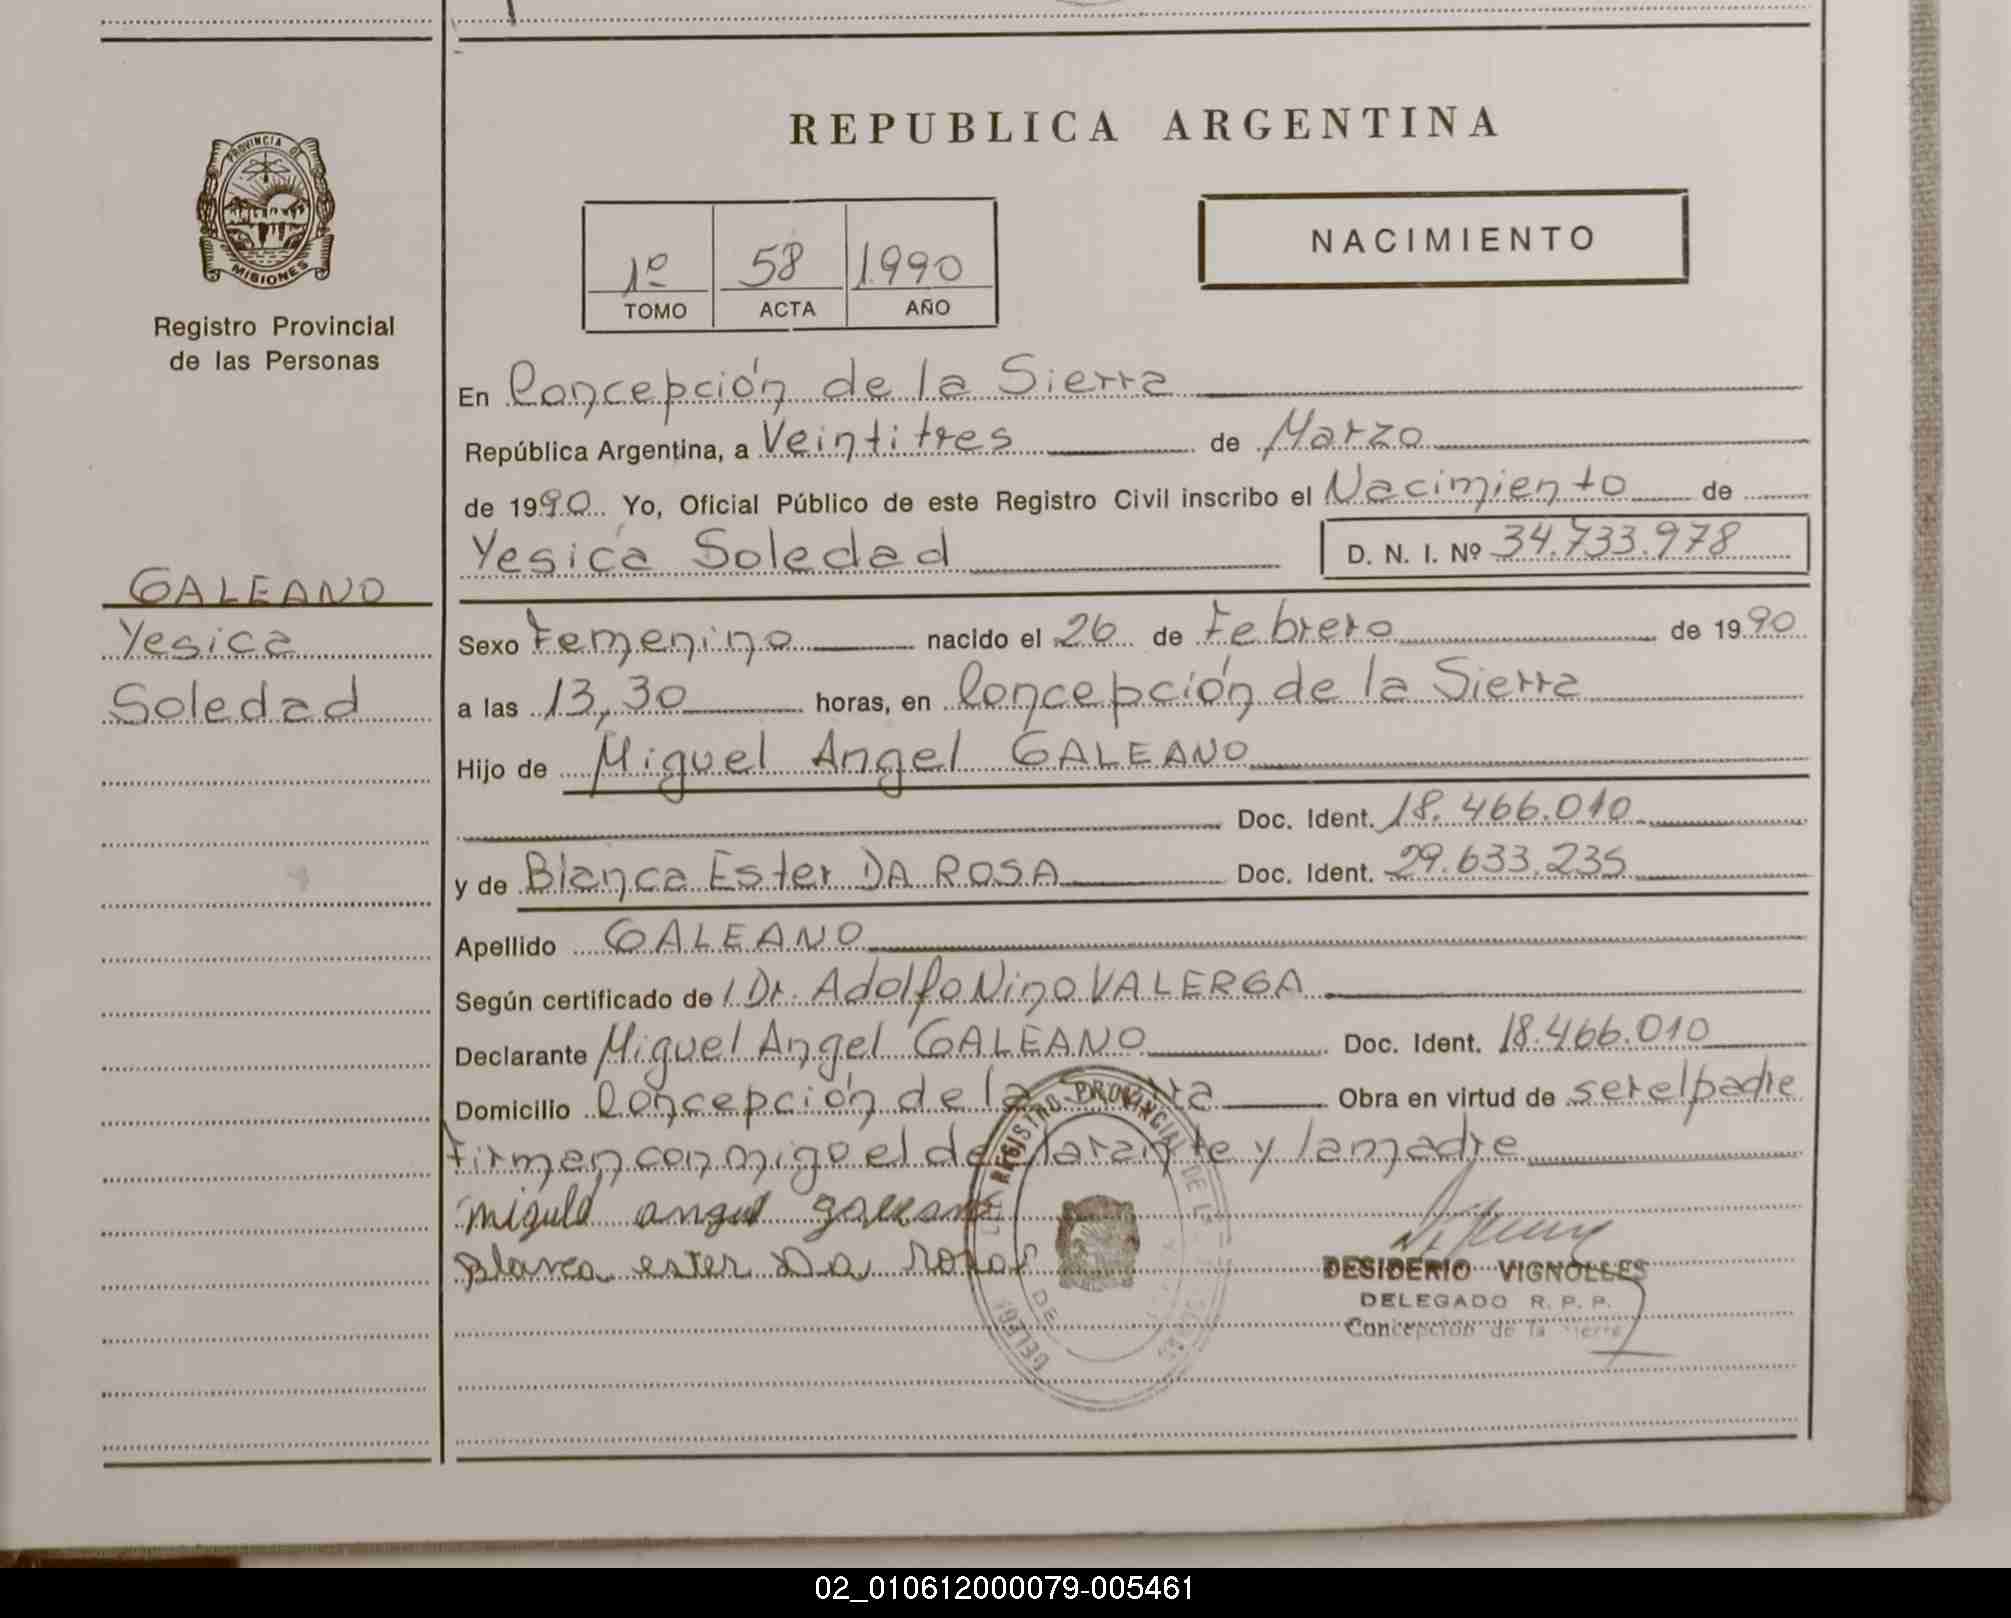 REPUBLICA ARGENTINA
PROVINCIA DE
MISIONES
Registro Provincial
de las Personas
1º 58 1.990
TOMO ACTA AÑO
NACIMIENTO
En Concepción de la Sierra
República Argentina, a Veintitres de Marzo
de 1990 Yo, Oficial Público de este Registro Civil inscribo el Nacimiento de
Yesica Soledad D. N. I. Nº 34.733.978
GALEANO
Yesica
Soledad
Sexo Femenino nacido el 26 de Febrero de 1990
a las 13,30 horas, en Concepción de la Sierra
Hijo de Miguel Angel GALEANO
Doc. Ident. 18.466.010
y de Blanca Ester DA ROSA Doc. Ident. 29.633.235
Apellido GALEANO
Según certificado de Dr. Adolfo Nino VALERGA
Declarante Miguel Angel GALEANO Doc. Ident. 18.466.010
Domicilio Concepción de la Obra en virtud de ser el padre
Firman conmigo el declarante y la madre
REGISTRO PROVINCIAL DE
miguel angel galeano
Blanca ester Da Rosa
DESIDERIO VIGNOLLES
DELEGADO R. P. P.
Concepción de la Sierra
02_010612000079-005461